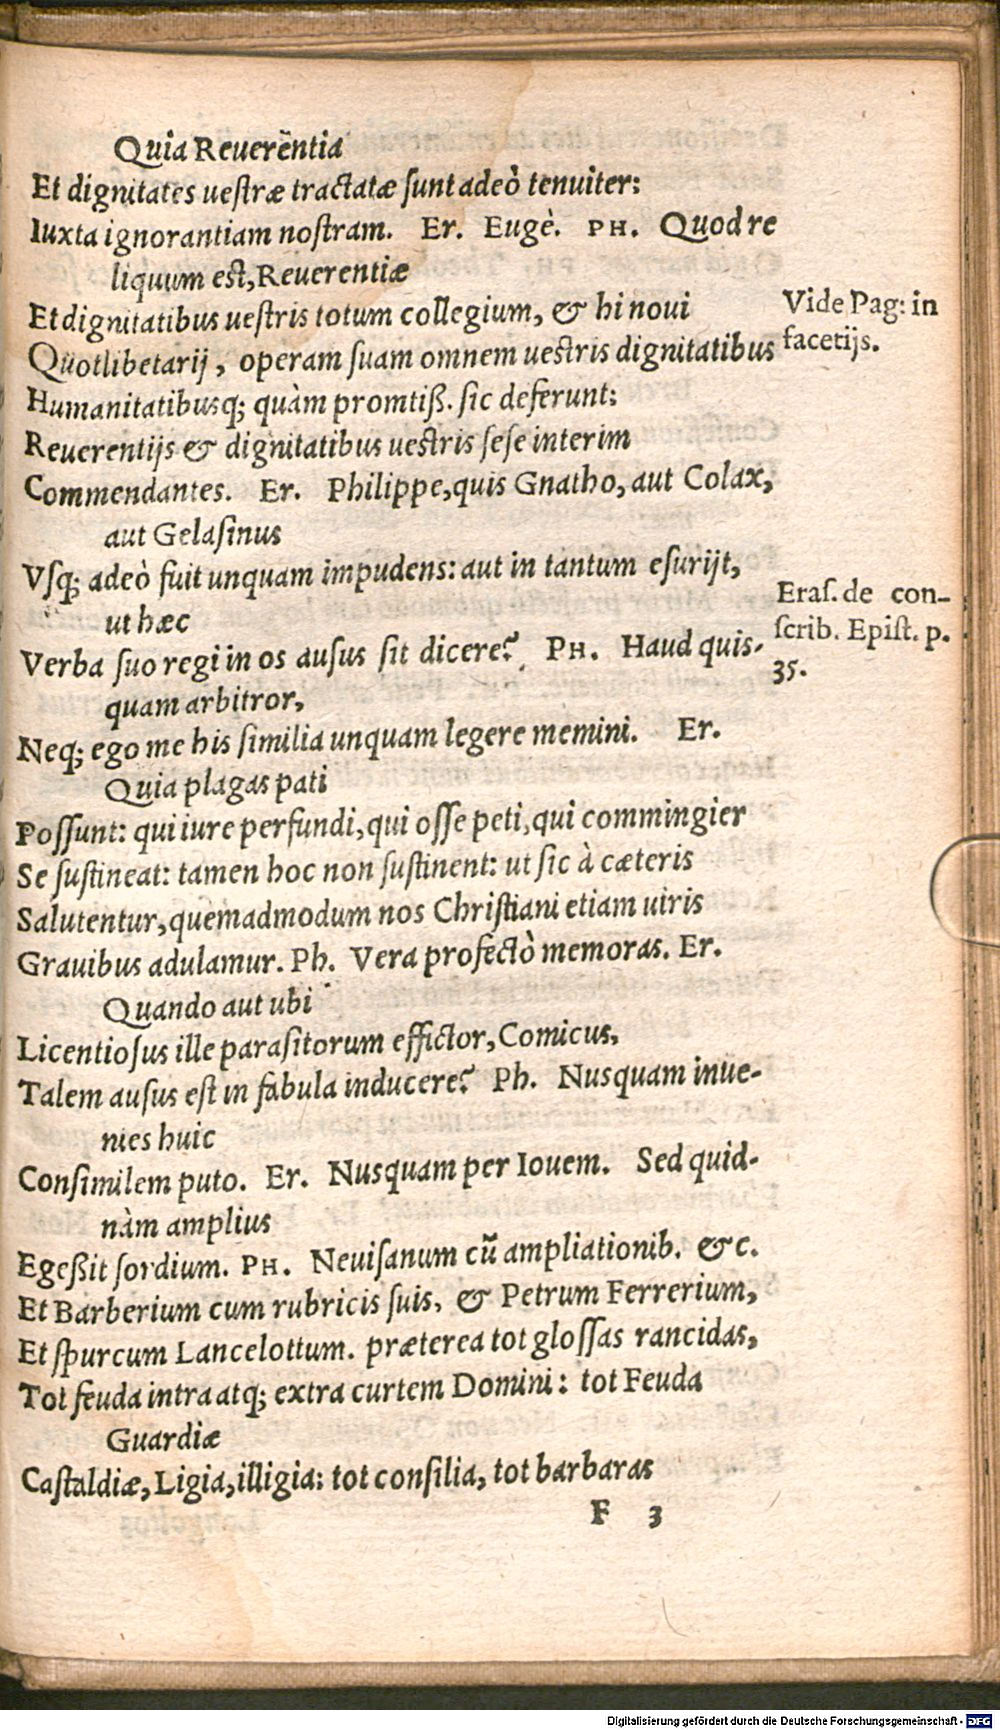 Quia Reuerētia
Et dignitates uestræ tractatæ sunt adeò tenuiter:
Iuxta ignorantiam nostram. Er. Eugè. PH. Quod re
liquum est, Reuerentiæ
Et dignitatibus uestris totum collegium, & hi noui
Quotlibetarij, operam suam omnem uestris dignitatibus
Humanitatibusq; quàm promtiß. sic deferunt:
Reuerentijs & dignitatibus uestris sese interim
Commendantes. Er. Philippe, quis Gnatho, aut Colax,
aut Gelasinus
Vsq; adeò fuit unquam impudens: aut in tantum esurijt,
ut hæc
Verba suo regi in os ausus sit dicere? PH. Haud quis-
quam arbitror,
Neq; ego me his similia unquam legere memini. Er.
Quia plagas pati
Possunt: qui iure perfundi, qui osse peti, qui commingier
Se sustineat: tamen hoc non sustinent: ut sic à cæteris
Salutentur, quemadmodum nos Christiani etiam uiris
Grauibus adulamur. Ph. Vera profectò memoras. Er.
Quando aut ubi
Licentiosus ille parasitorum effictor, Comicus,
Talem ausus est in fabula inducere? Ph. Nusquam inue-
nies huic
Consimilem puto. Er. Nusquam per Iouem. Sed quid-
nàm amplius
Egeßit sordium. PH. Neuisanum cũ ampliationib. &c.
Et Barberium cum rubricis suis, & Petrum Ferrerium,
Et spurcum Lancelottum. præterea tot glossas rancidas,
Tot feuda intra atq; extra curtem Domini: tot Feuda
Guardiæ
Castaldiæ, Ligia, illigia: tot consilia, tot barbaras
F 3
Vide Pag: in
facetijs.
Eras. de con-
scrib. Epist. p.
35.
Digitalisierung gefördert durch die Deutsche Forschungsgemeinschaft - DFG